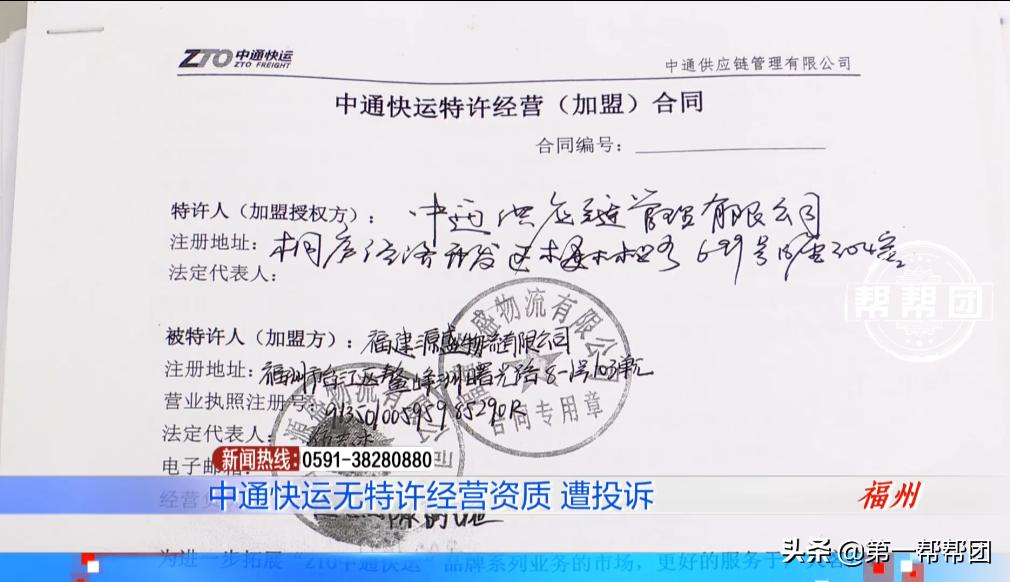 ZTO 中通快运
ZTO FREIGHT
中通供应链管理有限公司
中通快运特许经营（加盟）合同
合同编号：
特许人（加盟授权方）：中通供应链管理有限公司
注册地址：桐庐经济开发区 699号
法定代表人：
帮帮团
被特许人（加盟方）：福建源盛物流有限公司
注册地址：福州市台江区鳌峰洲曙光路8-1号103单元
营业执照注册号：
法定代表人：
电子邮箱
源盛物流有限公司
合同专用章
新闻热线：0591-38280880
中通快运无特许经营资质 遭投诉
福州
为进一步拓展“ZTO中通快运”品牌系列业务的市场，更好的服务于
头条 @第一帮帮团